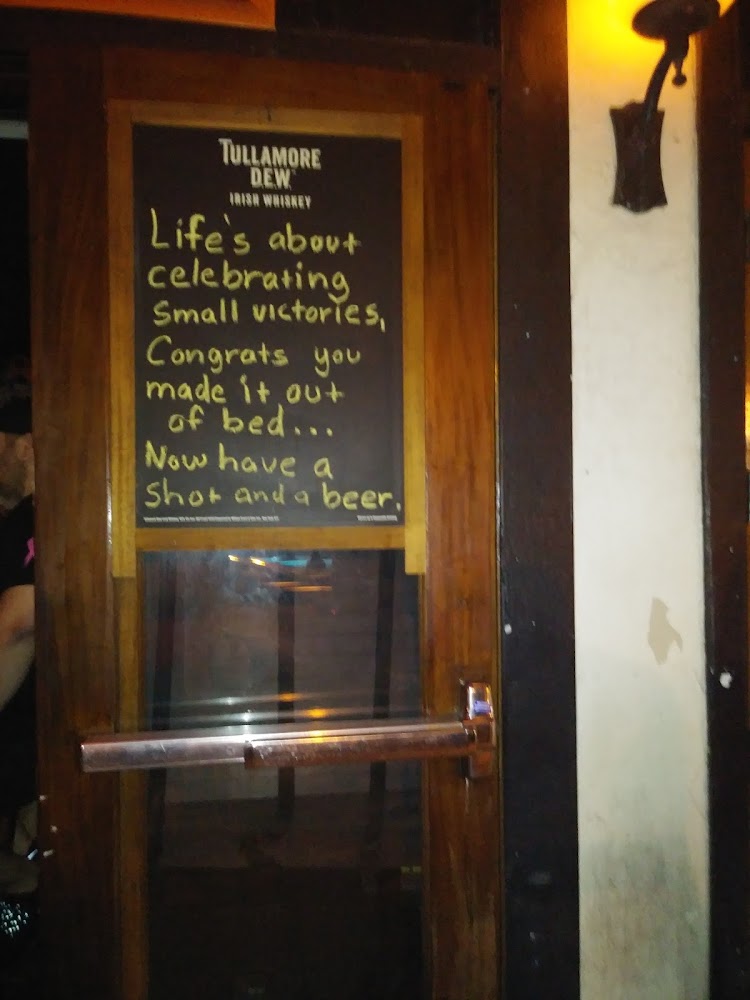 TULLAMORE
D.E.W.
IRISH WHISKEY
Life's about
celebrating
small victories,
Congrats you
made it out
of bed...
Now have a
shot and a beer.